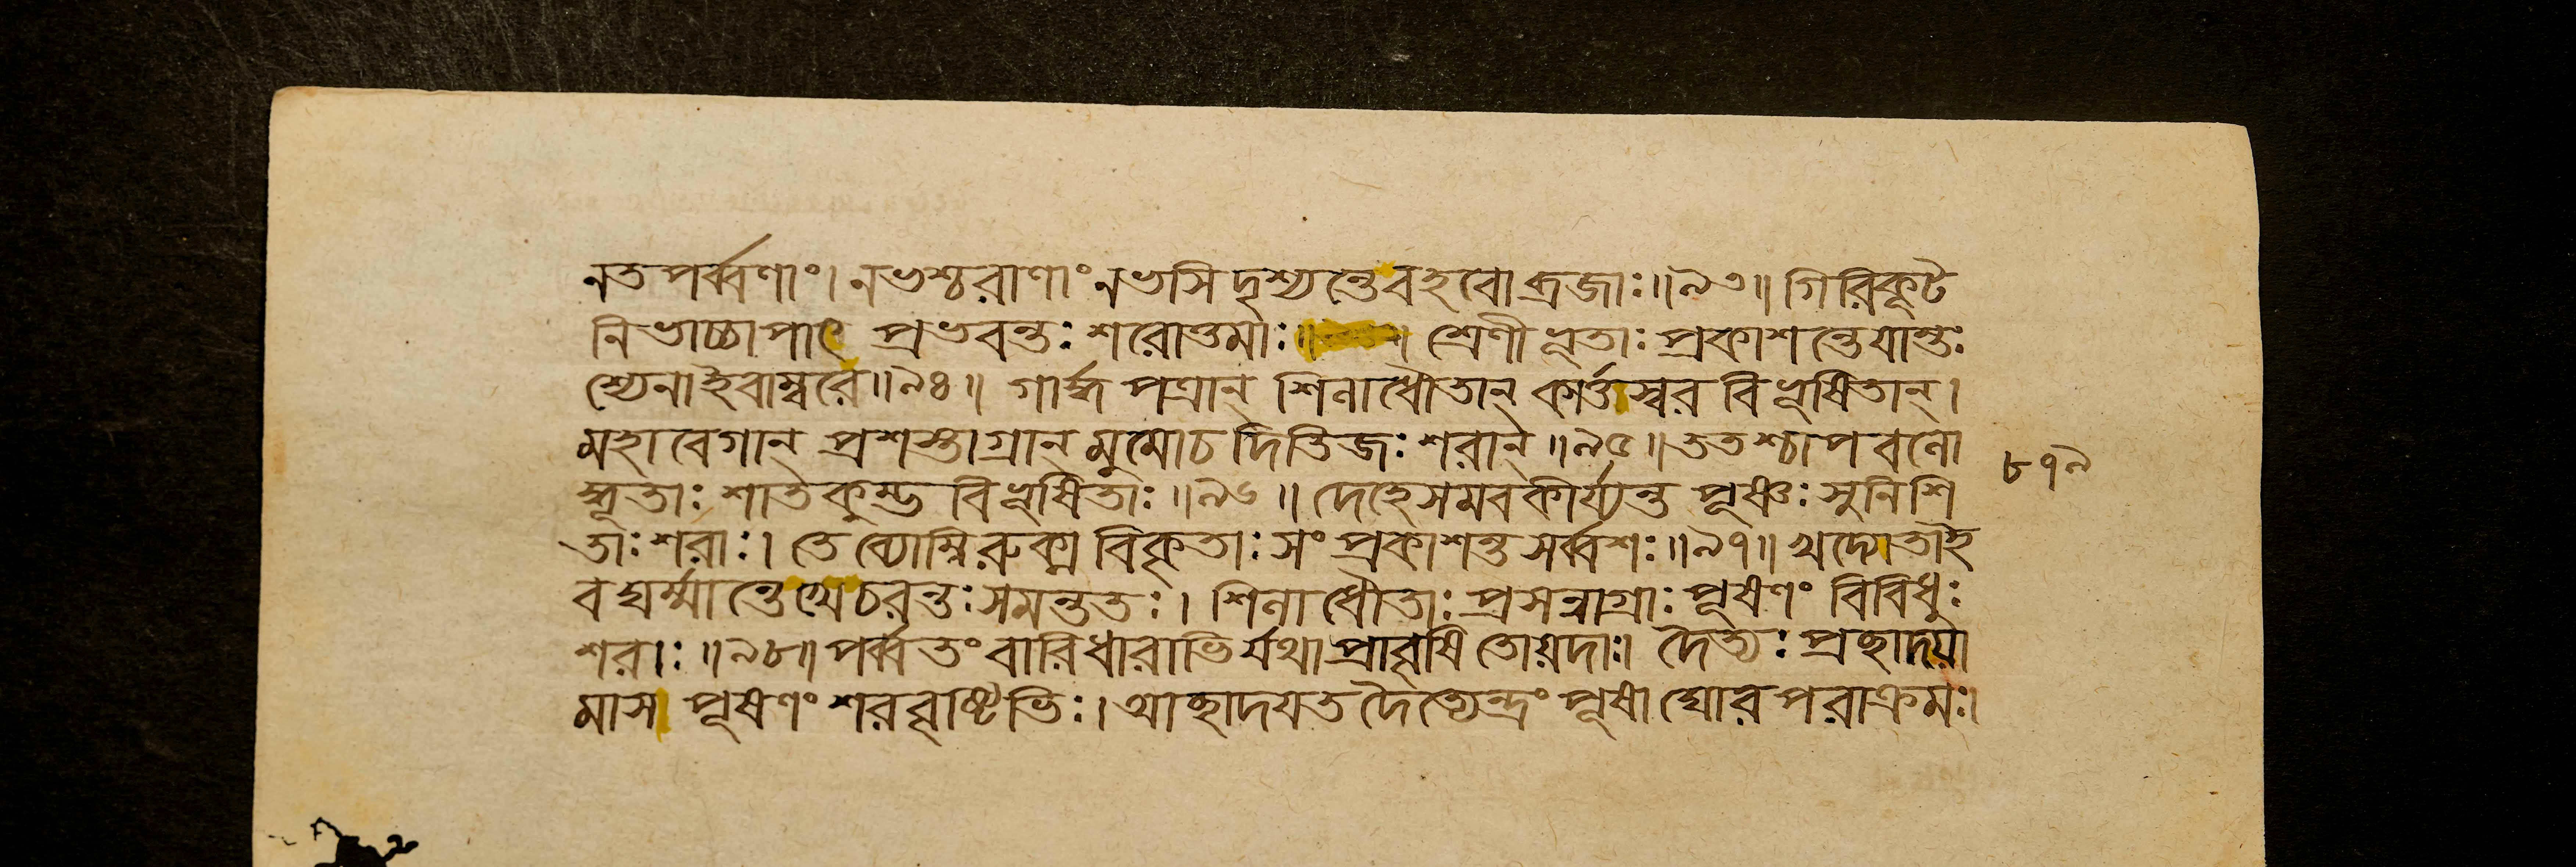 নতপর্ব্বণাং। নভশ্চরাণাং নভসি দৃশ্যন্তে বহবো ব্রজাঃ॥৯৩॥ গিরিকূট
নিভাচ্চাপাৎ প্রভবন্তঃ শরোত্তমাঃ॥ শ্রেণীভূতাঃ প্রকাশন্তে যান্তঃ
শ্যেনাইবাম্বরে॥৯৪॥ গার্দ্ধপত্রান্ শিলাধৌতান্ কার্ত্তস্বর বিভূষিতান্।
মহাবেগান্ প্রশস্তাগ্রান্ মুমোচ দিতিজঃ শরান্॥৯৫॥ ততশ্চাপবলো
দ্ধূতাঃ শাতকুম্ভ বিভূষিতাঃ॥৯৬॥ দেহে সমবকীর্য্যন্ত পূষ্ণঃ সুনিশি
তাঃ শরাঃ। তে ব্যোম্নি রুক্ম বিকৃতাঃ সংপ্রকাশন্ত সর্ব্বশঃ॥৯৭॥ খদ্যোতাই
ব ঘর্ম্মান্তে খে চরন্তঃ সমন্ততঃ। শিলা ধৌতাঃ প্রসন্নাগ্রাঃ পূষণং বিবিধুঃ
শরাঃ॥৯৮॥ পর্ব্বতং বারিধারাভির্যথা প্রাবৃষি তোয়দাঃ। দৈত্যঃ প্রচ্ছাদয়া
মাস পূষণং শরবৃষ্টিভিঃ। আচ্ছাদযত দৈত্যেন্দ্রং পূষা ঘোর পরাক্রমঃ।
৮৭৯